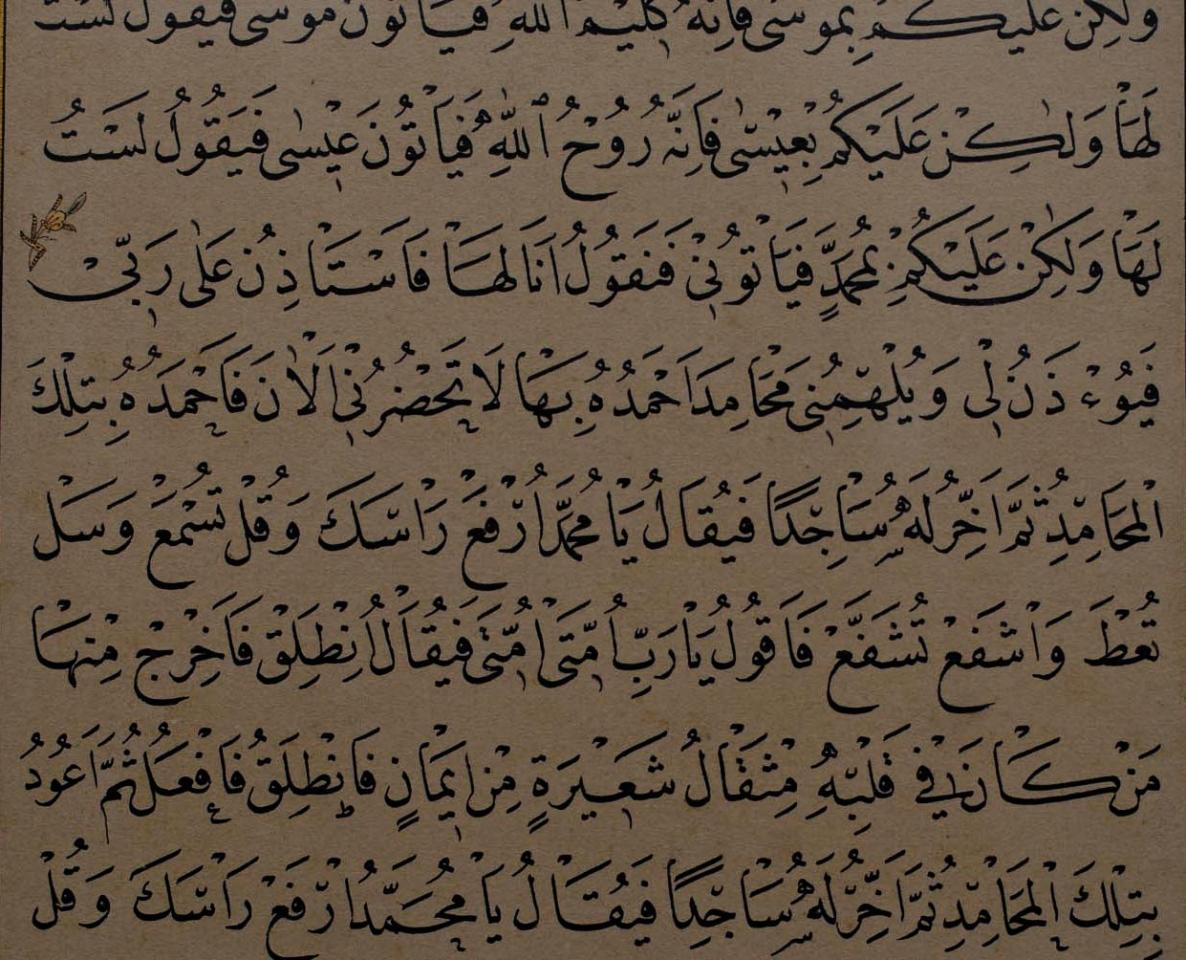 ولكن عليكم بموسى فانه كليم الله فياتون موسى فيقول لست
لَهَا وَلٰكِنْ عَلَيْكُمْ بِعِيسٰى فَاِنَّهُ رُوْحُ اللّٰهِ فَيَأْتُوْنَ عِيْسٰى فَيَقُوْلُ لَسْتُ
لَهَا وَلٰكِنْ عَلَيْكُمْ بِمُحَمَّدٍ فَيَأْتُوْنِيْ فَنَقُوْلُ اَنَا لَهَا فَاَسْتَاْذِنُ عَلٰى رَبِّيْ
فَيُوءْذَنُ لِيْ وَيُلْهِمُنِي مَحَامِدَ اَحْمَدُهُ بِهَا لَا تَحْضُرُنِي الْاٰنَ فَاَحْمَدُهُ بِتِلْكَ
الْمَحَامِدِ ثُمَّ اَخِرُّ لَهُ سَاجِدًا فَيُقَالُ يَا مُحَمَّدُ ارْفَعْ رَاْسَكَ وَقُلْ تُسْمَعْ وَسَلْ
تُعْطَ وَاشْفَعْ تُشَفَّعْ فَاَقُوْلُ يَارَبِّ اُمَّتِي اُمَّتِي فَيُقَالُ انْطَلِقْ فَاَخْرِجْ مِنْهَا
مَنْ كَانَ فِيْ قَلْبِهِ مِثْقَالُ شَعِيْرَةٍ مِنْ اِيْمَانٍ فَاَنْطَلِقُ فَاَفْعَلُ ثُمَّ اَعُوْدُ
بِتِلْكَ الْمَحَامِدِ ثُمَّ اَخِرُّ لَهُ سَاجِدًا فَيُقَالُ يَا مُحَمَّدُ ارْفَعْ رَاْسَكَ وَقُلْ